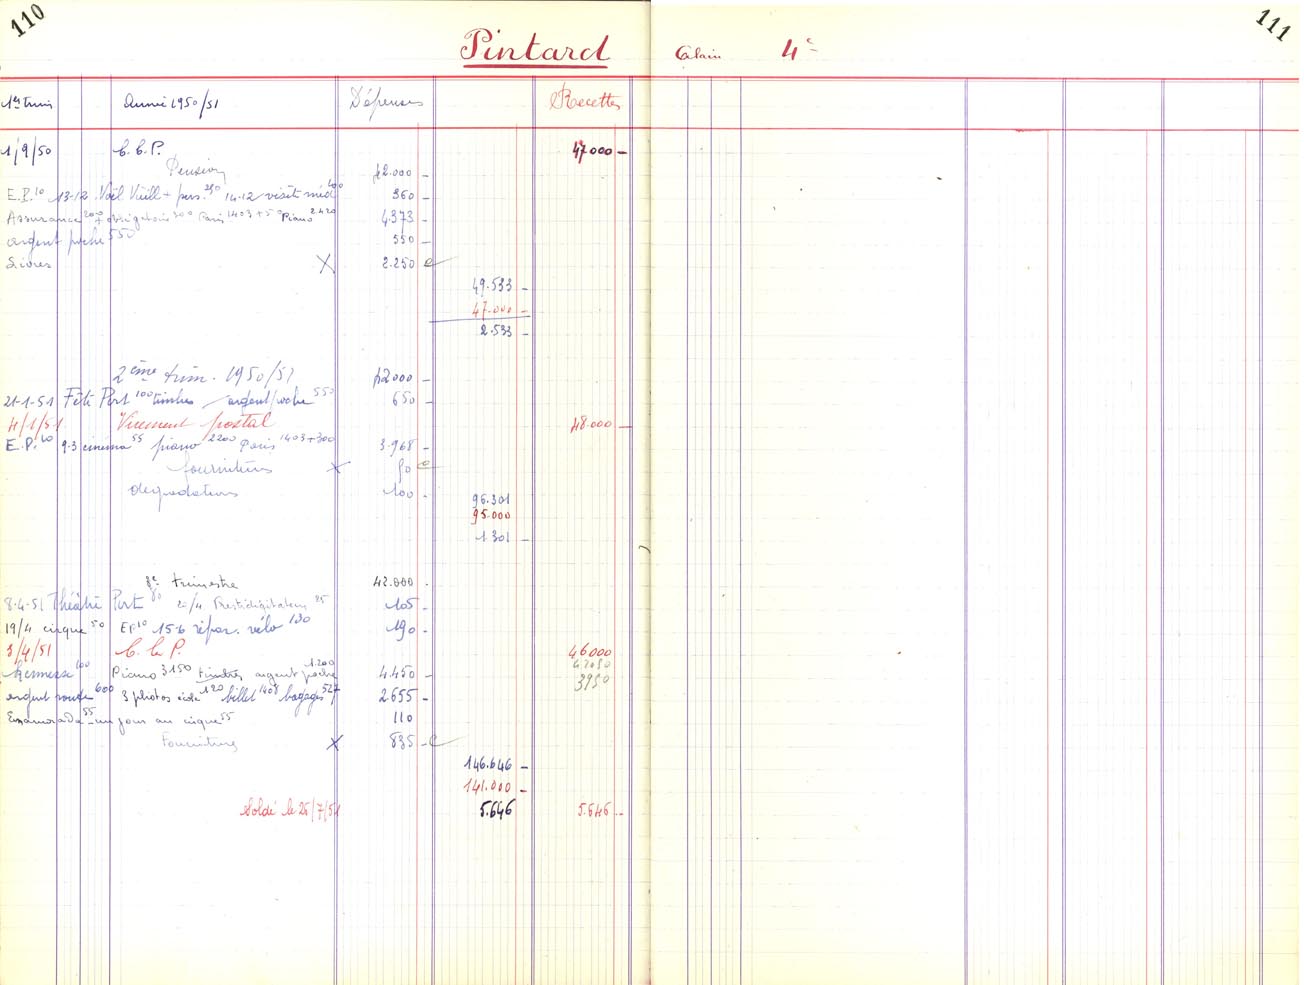 110
111
Pintard Alain 4e
1er Trim Année 1950/51 Dépenses Recettes
1/9/50 C.C.P. 47.000 -
Pension 42.000 -
E.P. 10 13-12 Noël Vieill + pers. 250 14-12 visite méd 100 360 -
Assurance 200 + obligatoire 300 Paris 1403 + 50 Piano 2420 4.373 -
argent poche 550 550 -
Livres X 2.250
49.533 -
47.000 -
2.533 -
2ème trim. 1950/51 42000 -
21-1-51 Fête Port 100 timbres argent poche 550 650 -
4/1/51 Virement postal 48.000 -
E.P. 10 9-3 cinéma 55 piano 2200 Paris 1403+300 3.968 -
fournitures X 50
dégradations 100 -
96.301
95.000
1.301 -
3e trimestre 42.000 -
8-4-51 Théâtre Port 80 20/4 Prestidigitateur 25 105 -
19/4 cirque 50 EP 10 15-6 répar. vélo 130 190 -
3/4/51 C.C.P. 46000
Kermesse 100 Piano 3150 timbres argent poche 1.200 4.450 - 42050
3950
argent route 600 3 photos école 120 billet 1408 bagages 527 2655 -
Enamorada 55 - un jour au cirque 55 110
Fournitures X 835 -
146.646 -
141.000 -
Soldé le 25/7/51 5.646 5.646 -